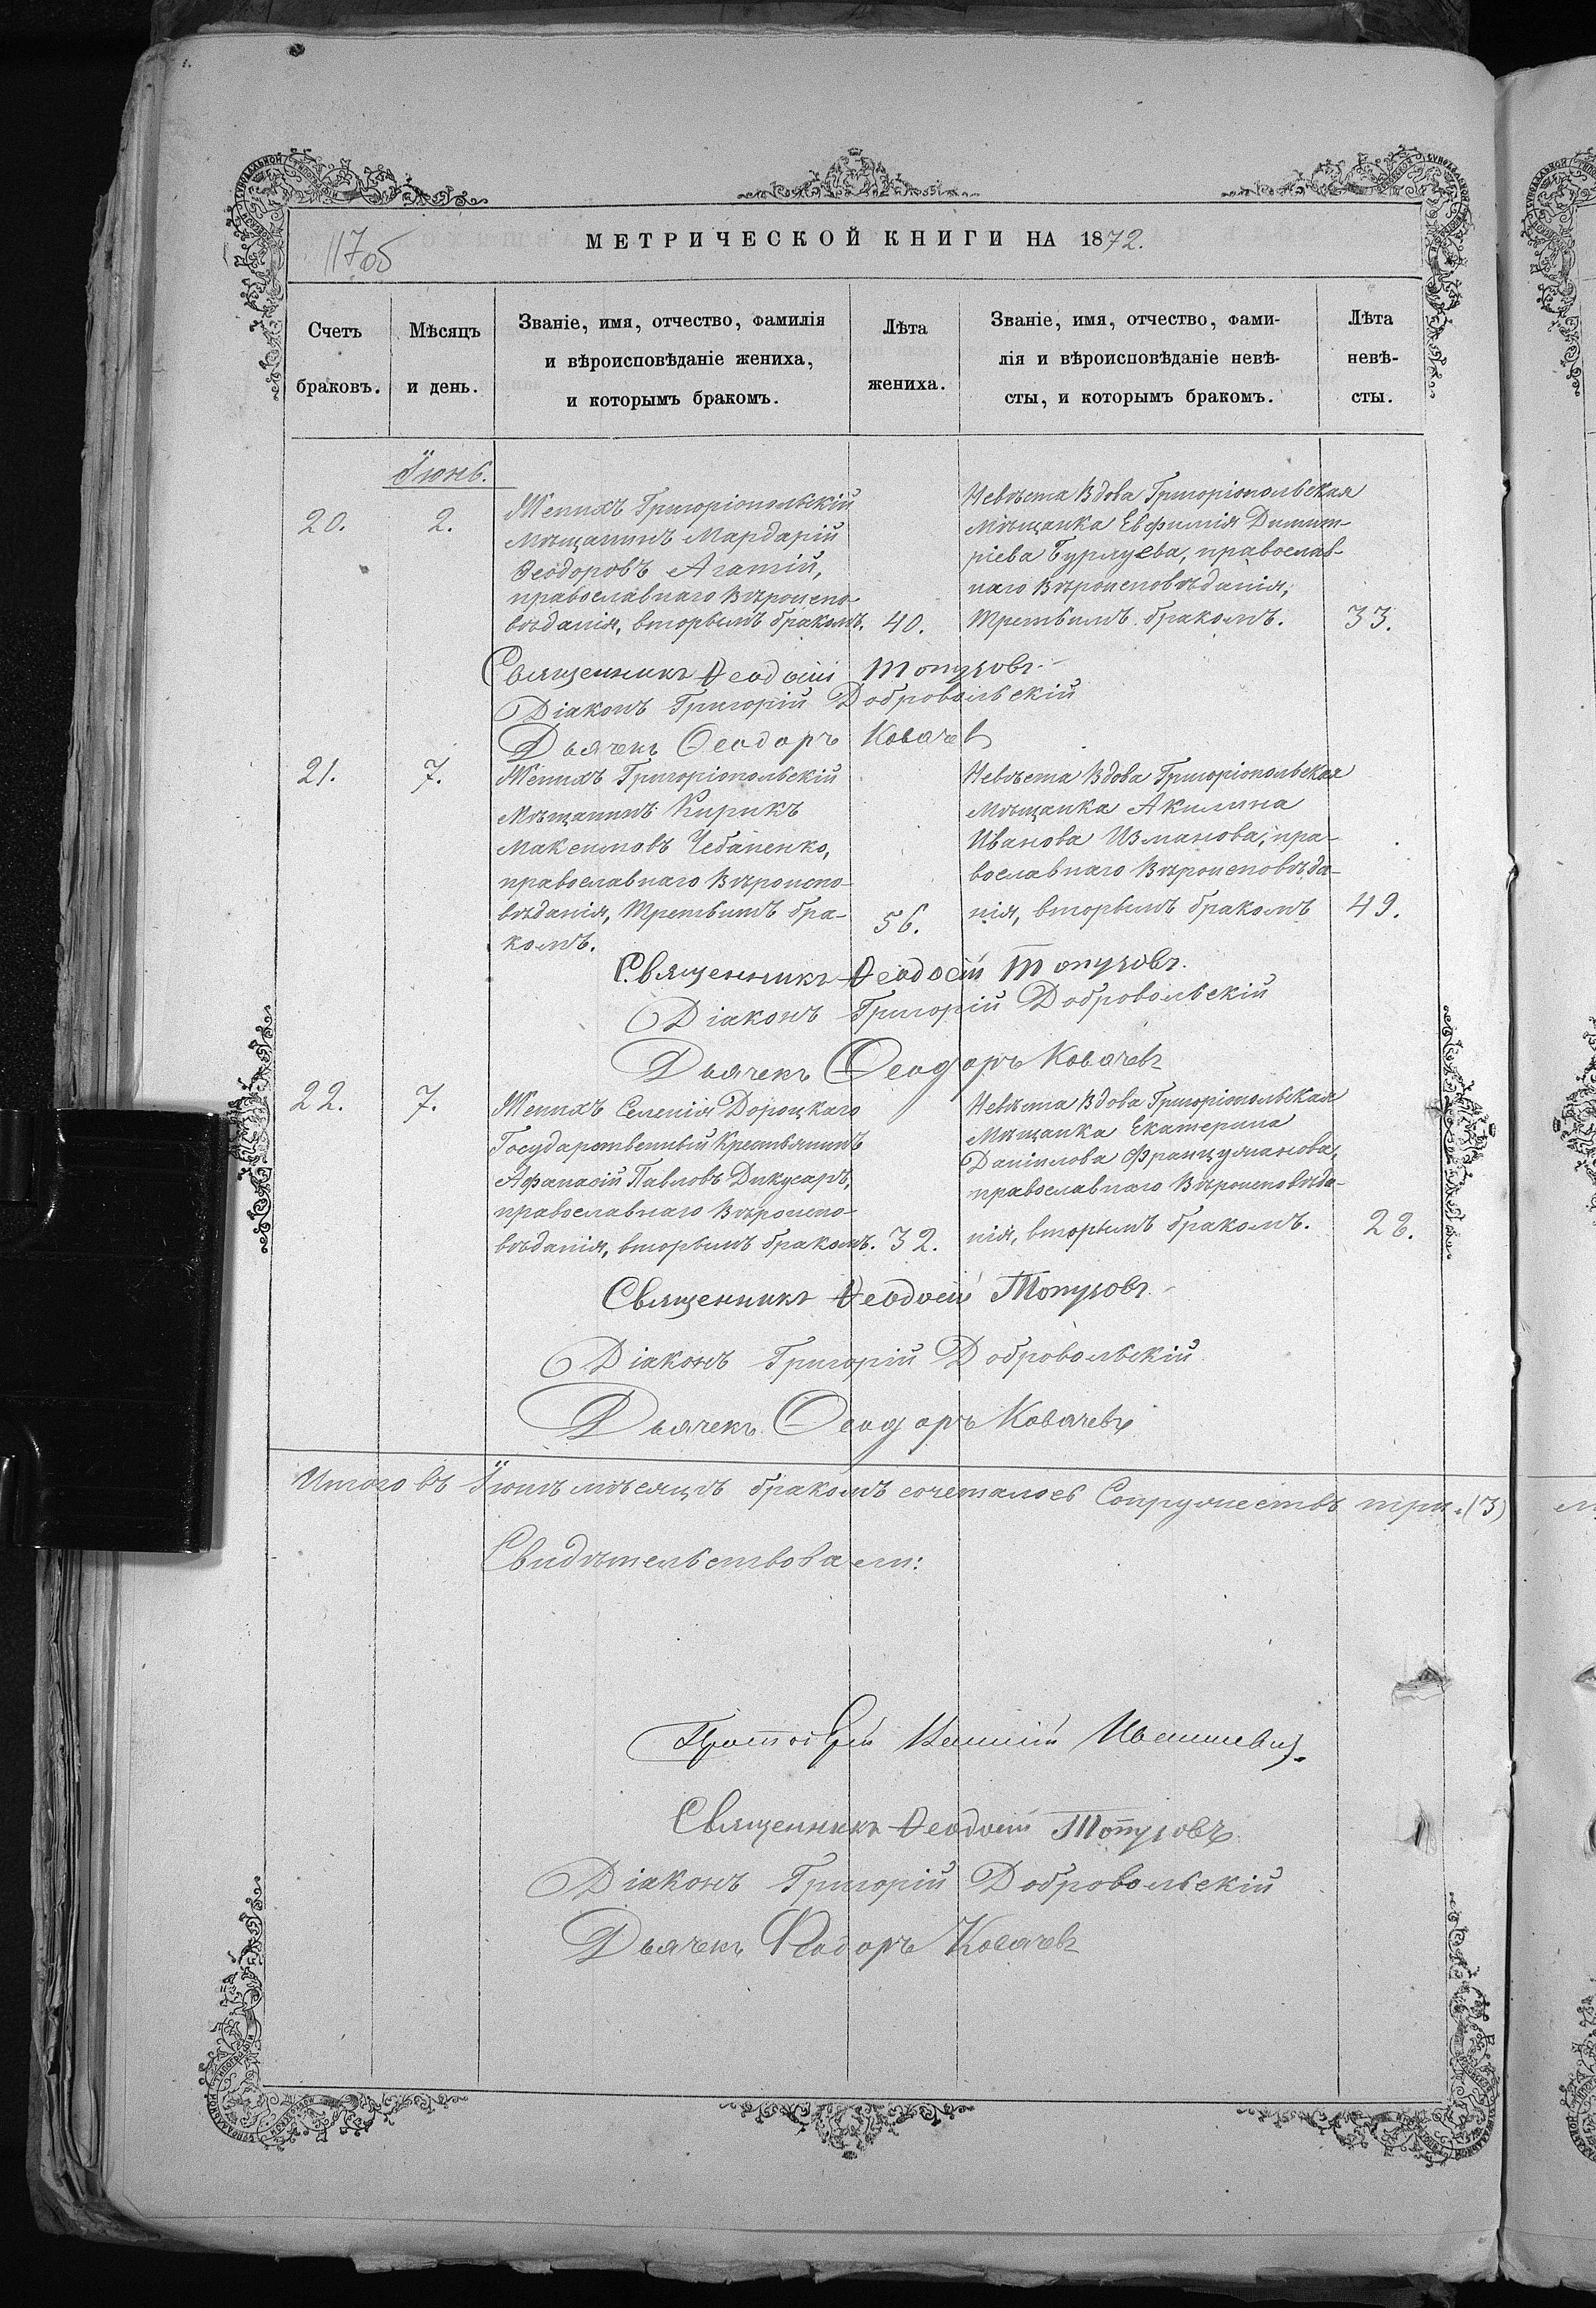 117об
МЕТРИЧЕСКОЙ КНИГИ НА 1872.
Счетъ
браковъ.
Мѣсяцъ
и день.
Званіе, имя, отчество, фамилія
и вѣроисповѣданіе жениха,
и которымъ бракомъ.
Лѣта
жениха.
Званіе, имя, отчество, фами-
лія и вѣроисповѣданіе невѣ-
сты, и которымъ бракомъ.
Лѣта
невѣ-
сты.
Іюнь.
20.
2.
Женихъ Григоріопольскій
Мѣщанинъ Мардарій
Ѳеодоровъ Агатій,
православнаго Вѣроиспо-
вѣданія, вторымъ бракомъ.
40.
Невѣста Вдова Григоріопольская
Мѣщанка Евфимія Димит-
ріева Бурлуева, православ-
наго Вѣроисповѣданія,
третьимъ бракомъ.
33.
Священникъ Ѳеодосій Топузовъ.
Діаконъ Григорій Добровольскій
Дьячекъ Ѳеодоръ Ковачев
21.
7.
Женихъ Григоріопольскій
Мѣщанинъ Кирикъ
Максимовъ Чебаненко,
православнаго Вѣроиспо-
вѣданія, третьимъ бра-
комъ.
56.
Невѣста Вдова Григоріопольская
Мѣщанка Акилина
Иванова Изманова, пра-
вославнаго Вѣроисповѣда-
нія, вторымъ бракомъ
49.
Священникъ Ѳеодосій Топузовъ.
Діаконъ Григорій Добровольскій
Дьячекъ Ѳеодоръ Ковачевъ
22.
7.
Женихъ Селенія Дороцкаго
Государственный Крестьянинъ
Афанасій Павловъ Дикусаръ,
православнаго Вѣроиспо-
вѣданія, вторымъ бракомъ.
32.
Невѣста Вдова Григоріопольская
Мѣщанка Екатерина
Даніилова Французманова,
православнаго Вѣроисповѣда-
нія, вторымъ бракомъ.
28.
Священникъ Ѳеодосій Топузовъ.
Діаконъ Григорій Добровольскій
Дьячекъ Ѳеодоръ Ковачевъ
Итого въ Іюнѣ мѣсяцѣ бракомъ сочеталось Супружествъ три.(3)
Свидѣтельствовали:
Протоіерей
Священникъ Ѳеодосій Топузовъ
Діаконъ Григорій Добровольскій
Дьячекъ Ѳеодоръ Ковачевъ